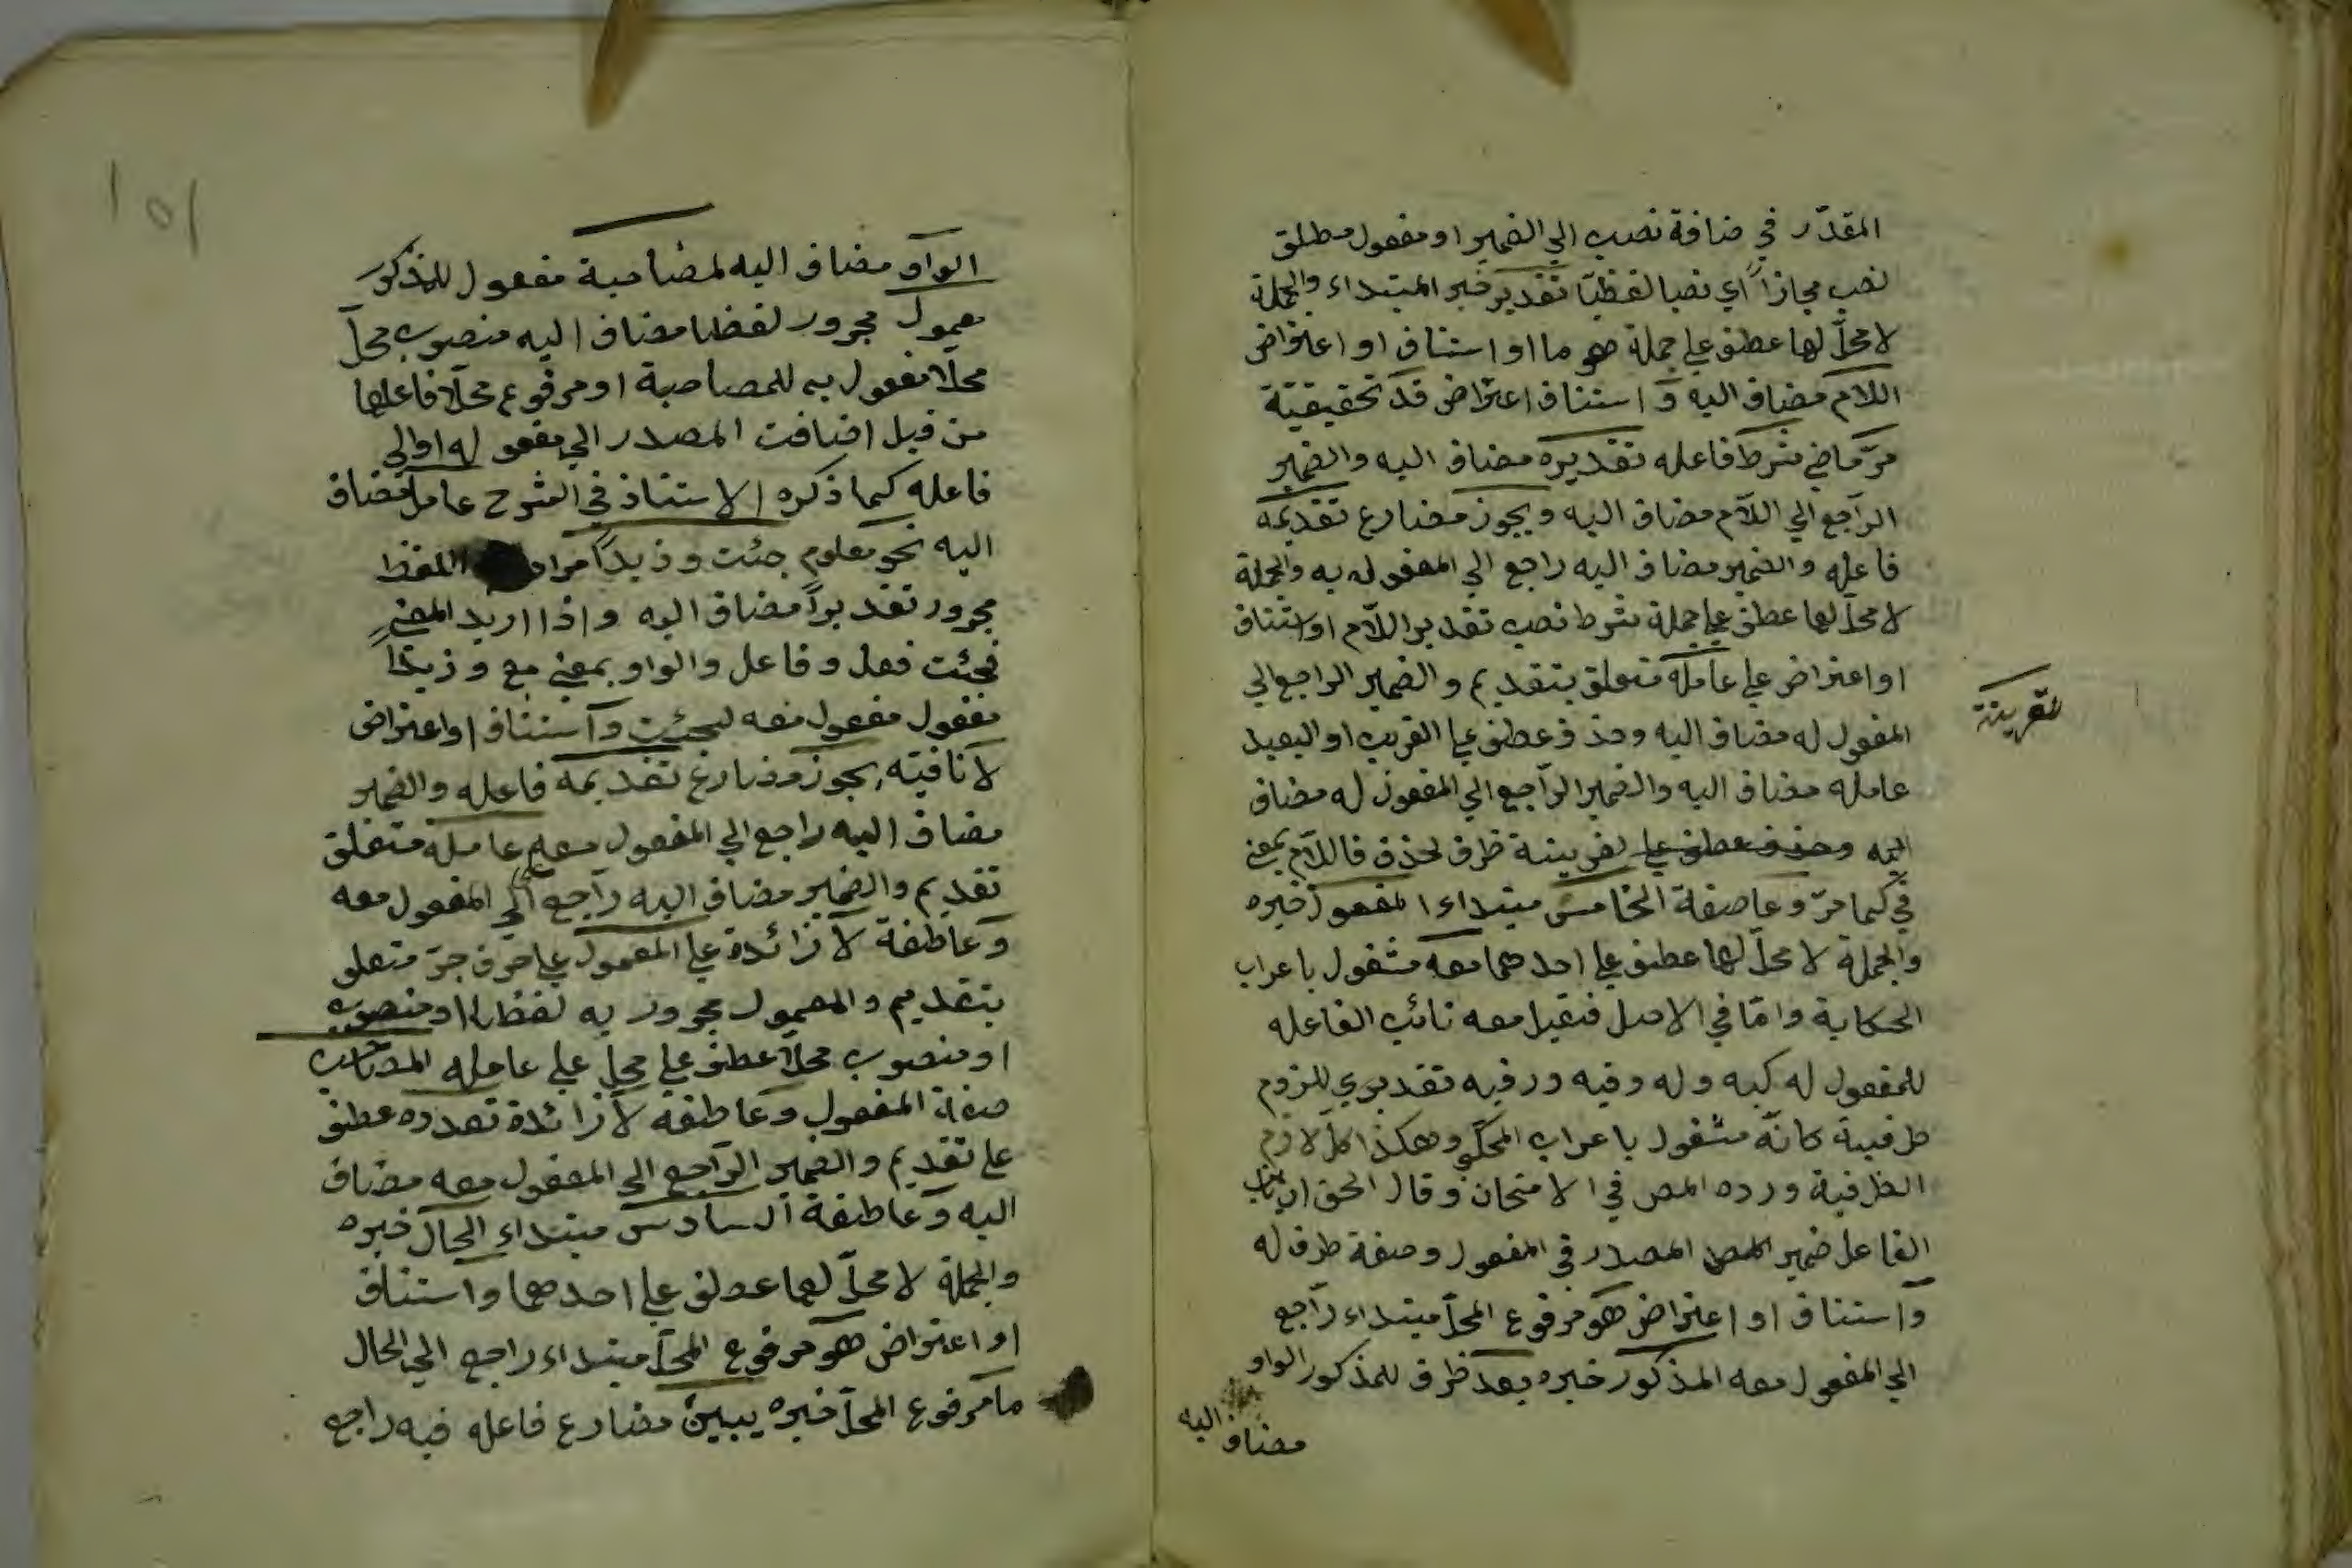 المقدّر في ضافة نصب الي الضمير او مفعول مطلق
نصب مجازاً اي نصبا لفظيّا تقدير خبر المبتداء والجملة
لا محلّ لها عطف علي جملة هو ما او استناف او اعتراض
اللام مضاف اليه و استناف اعتراض قد تحقيقيّة
مرّ ماضي شرط فاعله تقديره مضاف اليه والضمير
الراجع الي اللام مضاف اليه ويجوز مضارع تقديمه
فاعله والضمير مضاف اليه راجع الي المفعول به والجملة
لا محلّ لها عطف علي جملة شرط نصب تقدير اللّام او استناف
او اعتراض علي عامله متعلق بتقديم والضمير الراجع الي
المفعول له مضاف اليه وحذف عطف علي القريب او البعيد
عامله مضاف اليه والضمير الراجع الي المفعول له مضاف
اليه وحذف عطف علي لقرينة ظرف لحذف فاللام بمعني
لقرينة
في كما مرّ وعاصفة الخامس مبتداء المفعول خبره
والجملة لا محلّ لها عطف علي احدهما معه مشغول باعراب
الحكاية وامّا في الاصل فقيل معه نائب الفاعله
للمفعول له كبه وله وفيه ورفيه تقديري للزوم
ظرفية كانّه مشغول باعراب المحكّي وهكذا كلّ لازم
الظرفية ورده المص في الامتحان وقال الحق ان نائب
الفاعل ضمير المصدر في المفعول وصفة ظرف له
وآستناف او اعتراض هو مرفوع المحلّ مبتداء راجع
الي المفعول معه المذكور خبره بعد ظرف للمذكور الواو
مضاف اليه
الواو مضاف اليه لمصاحبة مفعول للمذكور
معمول مجرور لفظا مضاف اليه منصوب محلّ
محلّا مفعول به للمصاحبة او مرفوع محلّا فاعلها
من قبل اضافت المصدر الي مفعوله او الي
فاعله كما ذكره الاستناذ في الشرح عامل مضاف
اليه نحو معلوم جئت وزيداً مراد اللفظ
مجرور تقديراً مضاف اليه واذا اريد المعني
فجئت فعل وفاعل والواو بمعني مع وزيداً
مفعول مفعول معه لجئت وآستناف او اعتراض
لا نافيته يجوز مضارع تقديمه فاعله والضمير
مضاف اليه راجع الي المفعول معه علي عامله متعلق
تقديم والضمير مضاف اليه راجع الي المفعول معه
وعاطفة لا زائدة علي المعمول علي حرف جرّ متعلق
بتقديم والمعمول مجرور به لفظا او منصوب
او منصوب محلّا عطف علي محلّ علي عامله المصاحب
صفة المفعول وعاطفة لا زائدة تعدده عطف
علي تقديم والضمير الراجع الي المفعول معه مضاف
اليه وعاطفة السادس مبتداء الحال خبره
والجملة لا محلّ لها عطف علي احدهما واستناف
او اعتراض هو مرفوع المحلّ مبتداء راجع الي الحال
ما مرفوع المحلّ خبره يبين مضارع فاعله فيه راجع